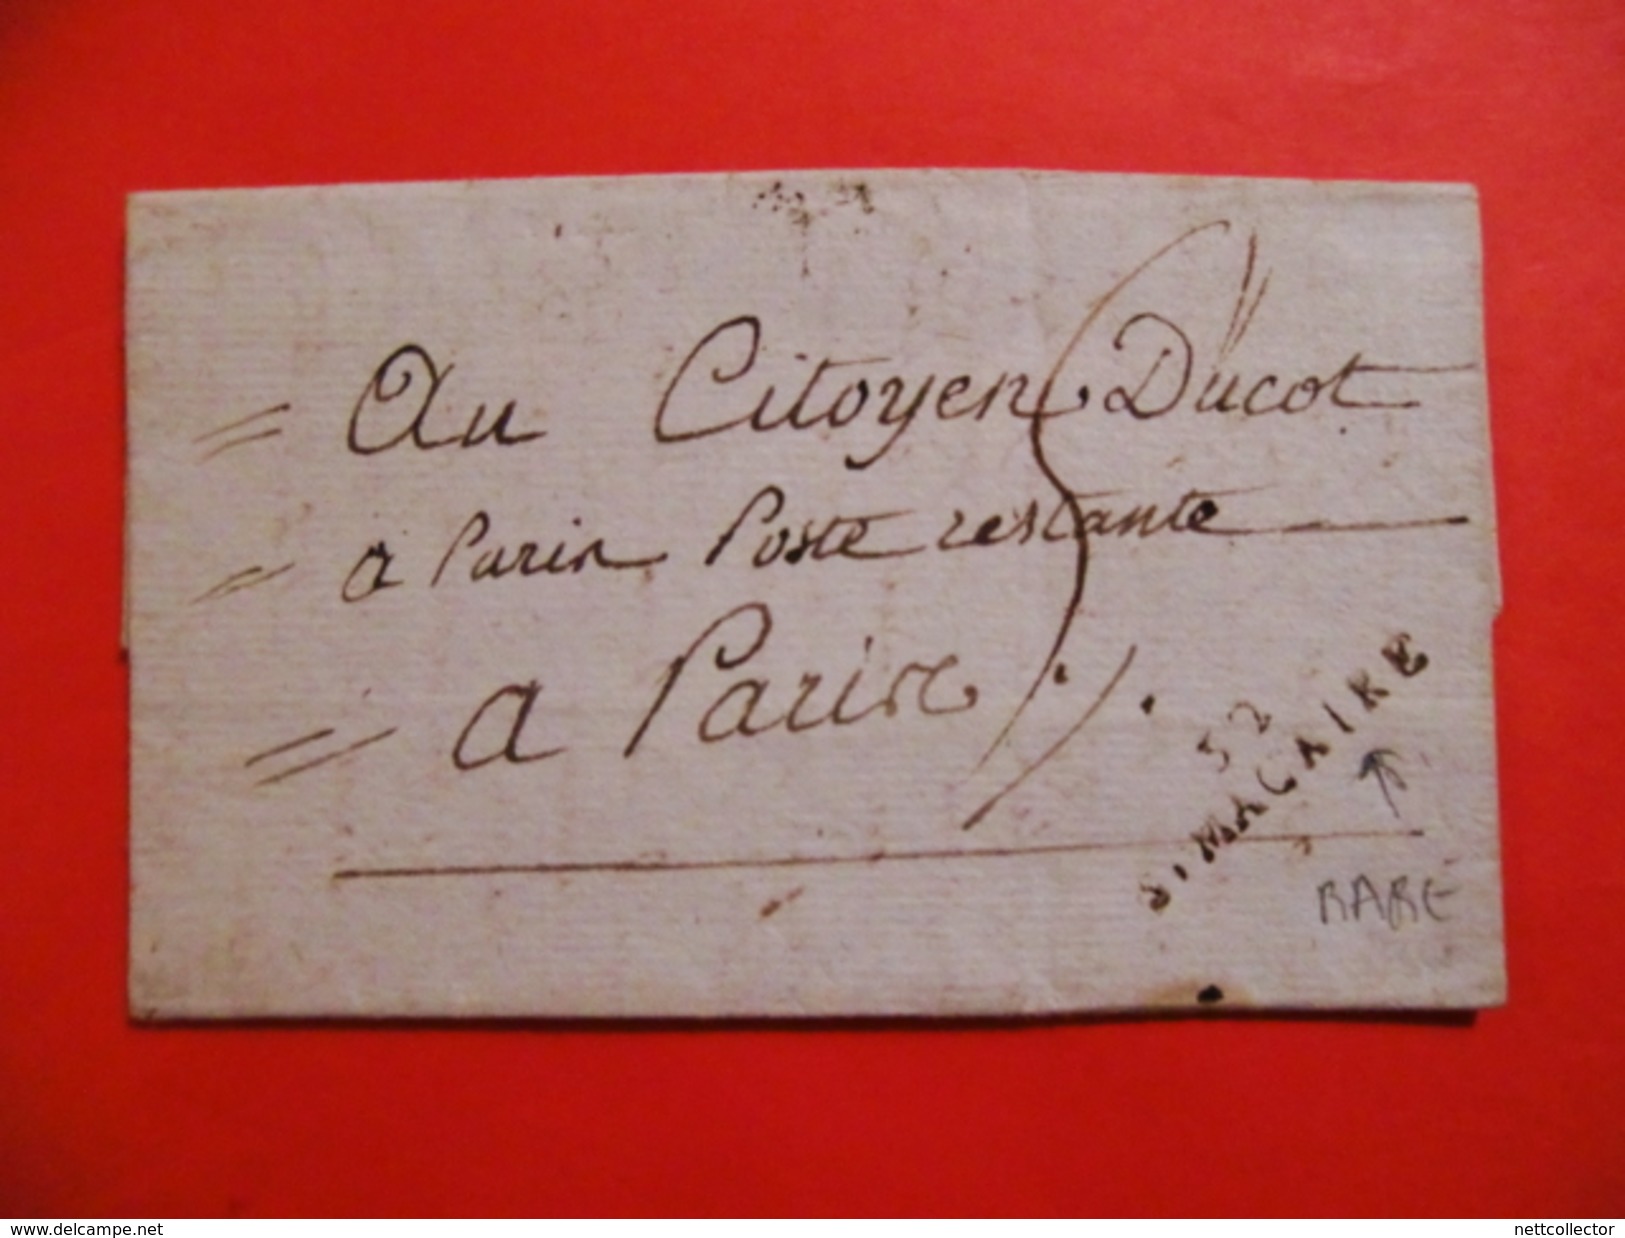 Au Citoyen Ducot
a Paris Poste restante
a Paris
52
St MACAIRE
RARE
www.delcampe.net
nettcollector